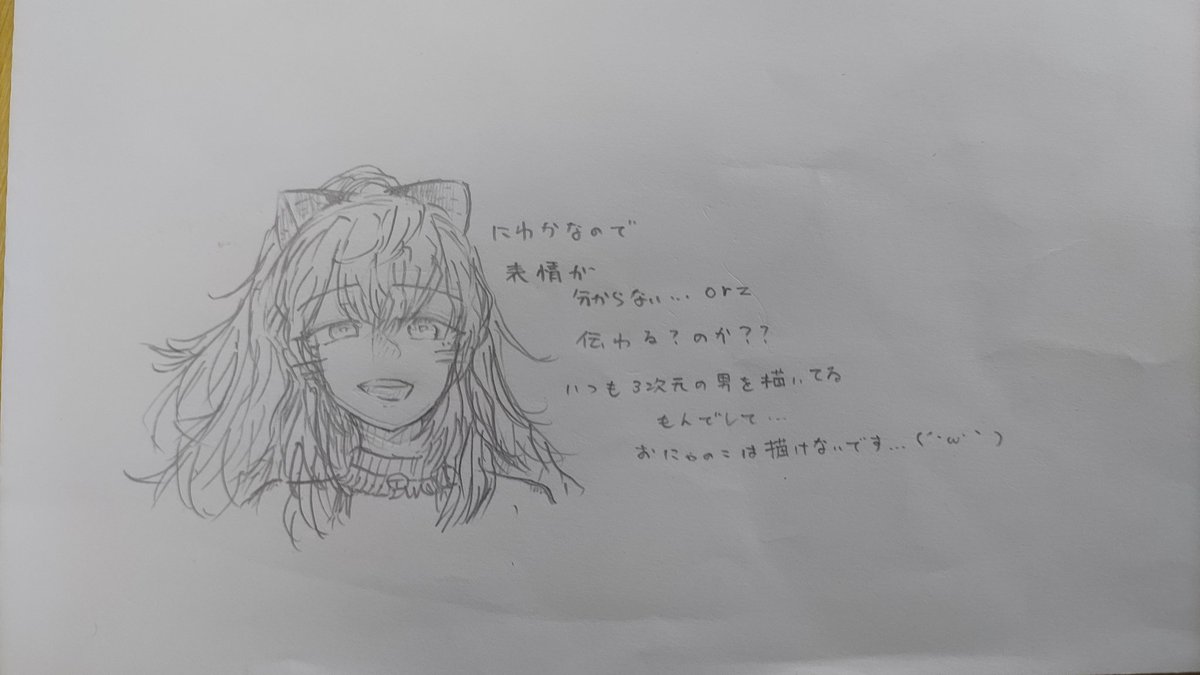 にわかなので
表情が
分からない… orz
伝わる?のか??
いつも3次元の男を描いてる
もんでして…
おにゃのこは描けないです…(´･ω･`)